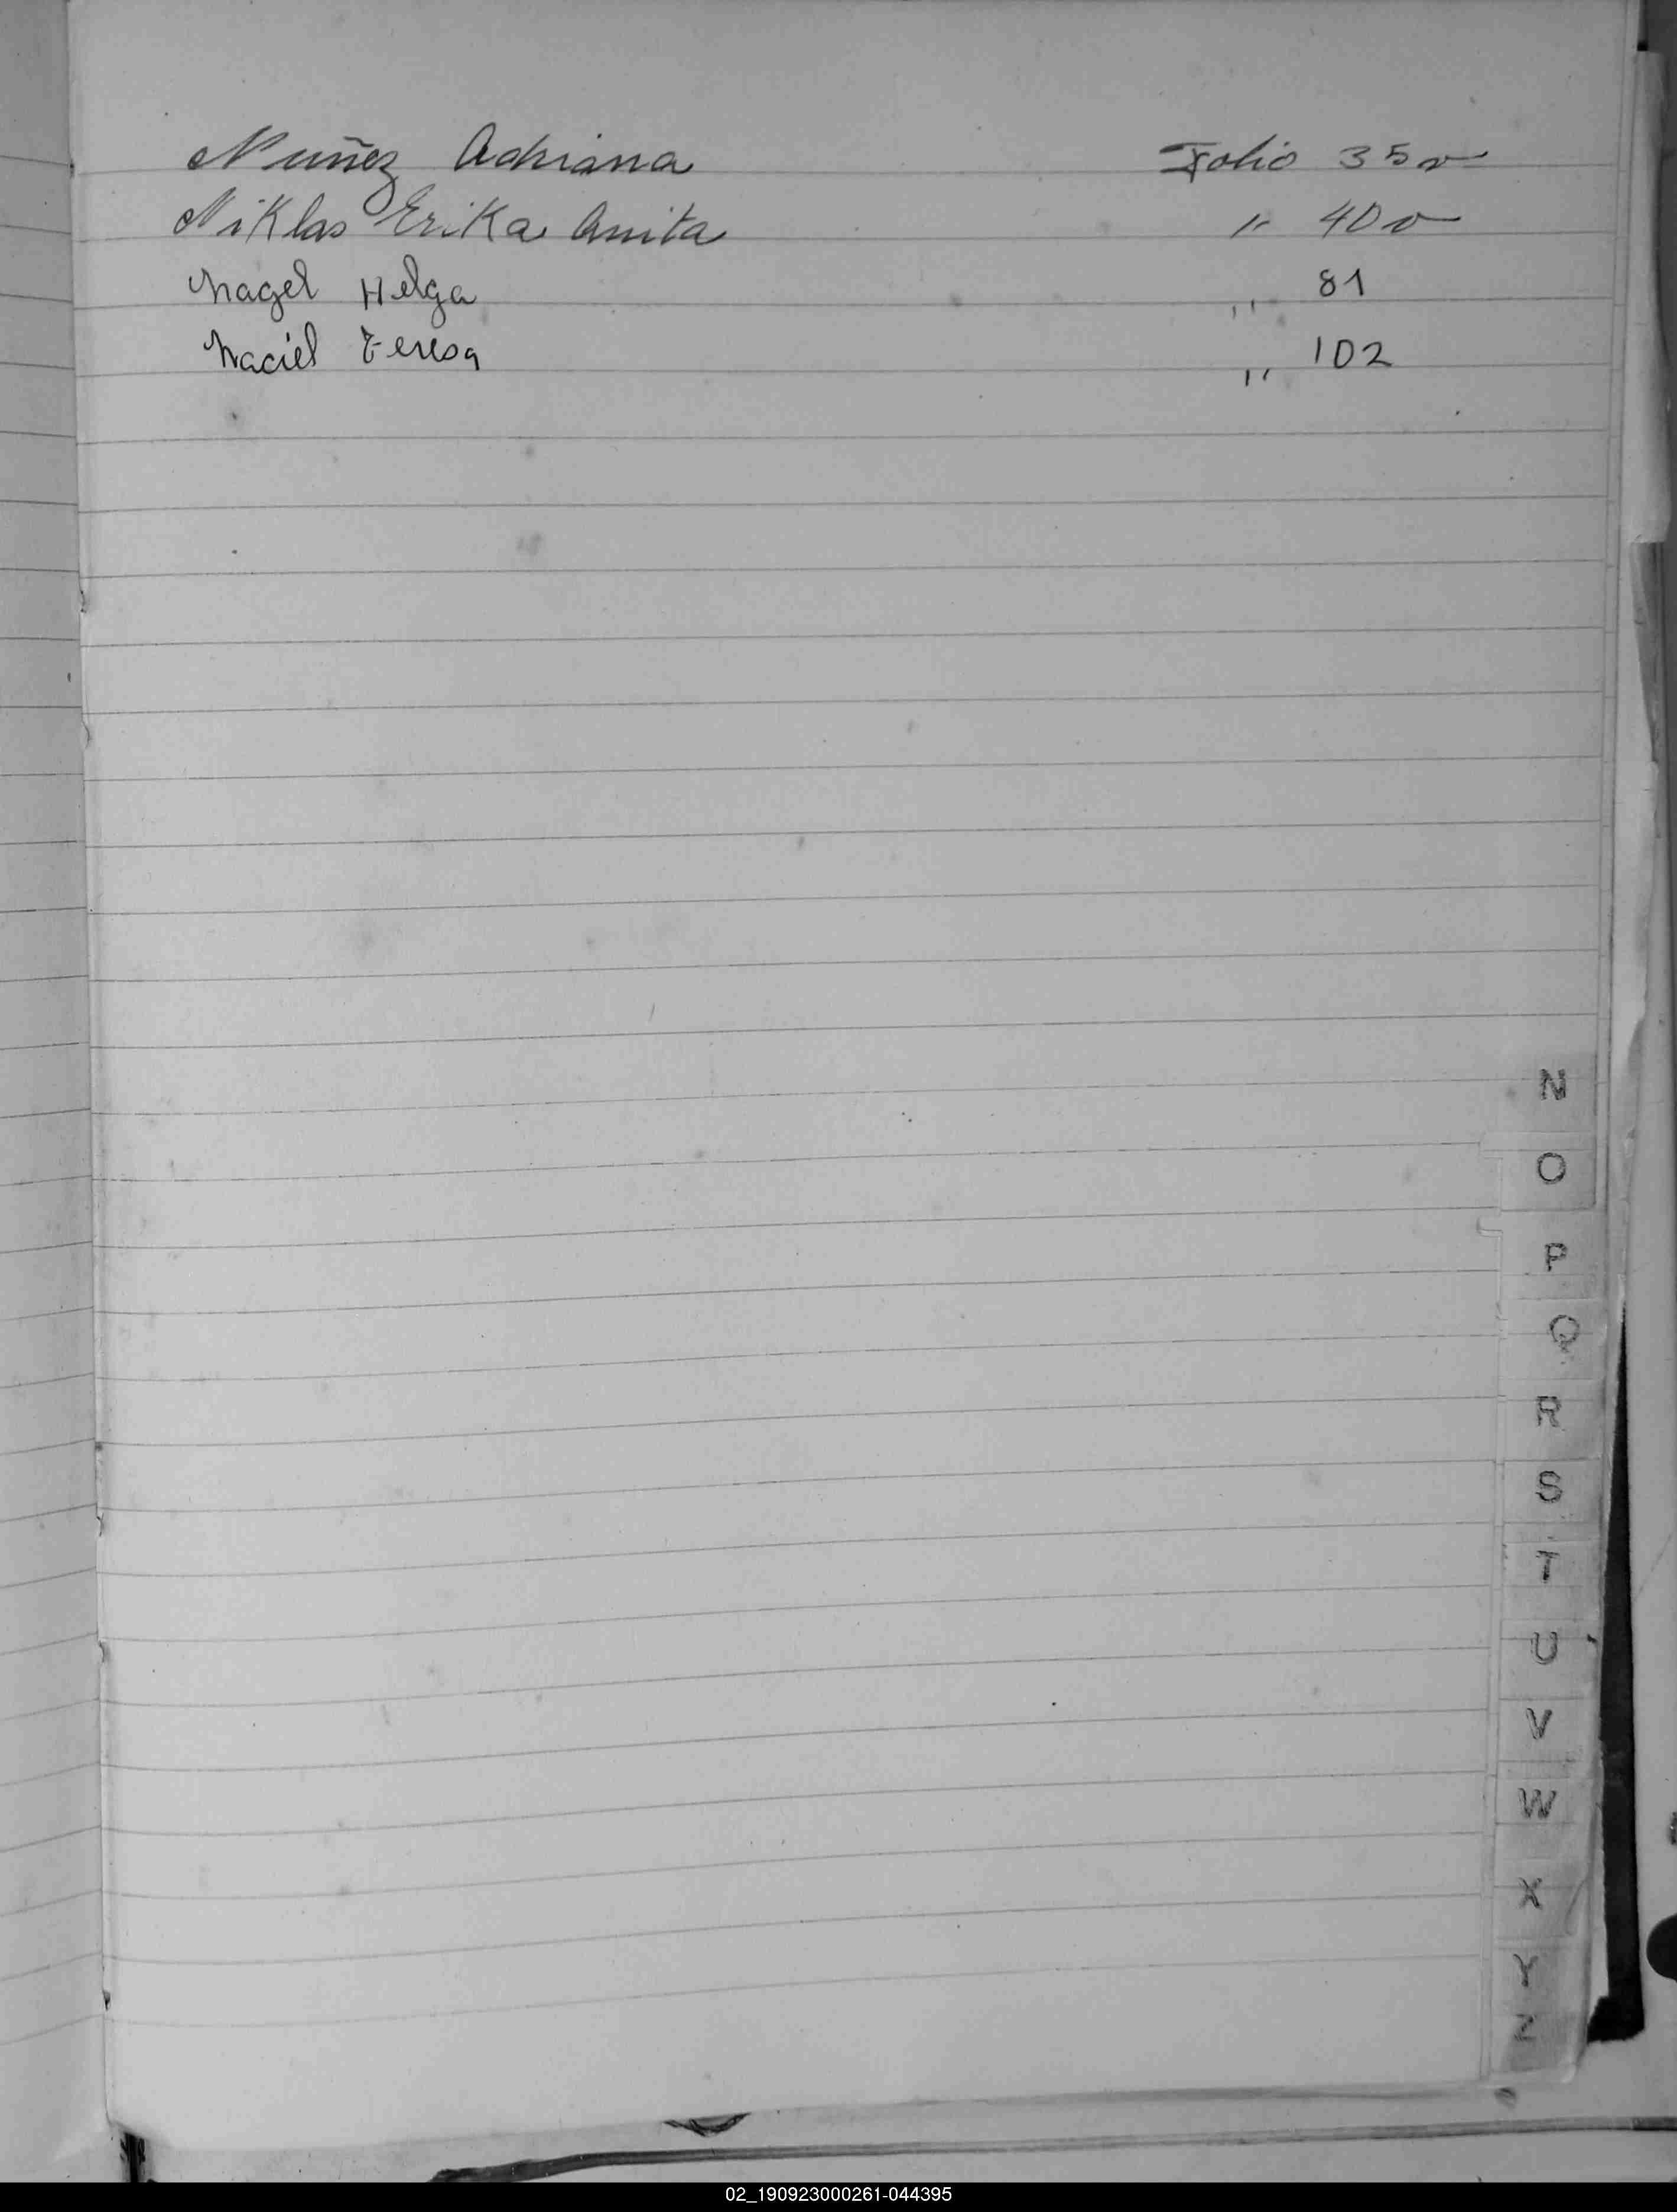 Nuñez Adriana Folio 35 v
Niklas Erika Anita " 40 v
Nagel Helga " 81
Naciel Teresa " 102
N
O
P
Q
R
S
T
U
V
W
X
Y
Z
02_190923000261-044395